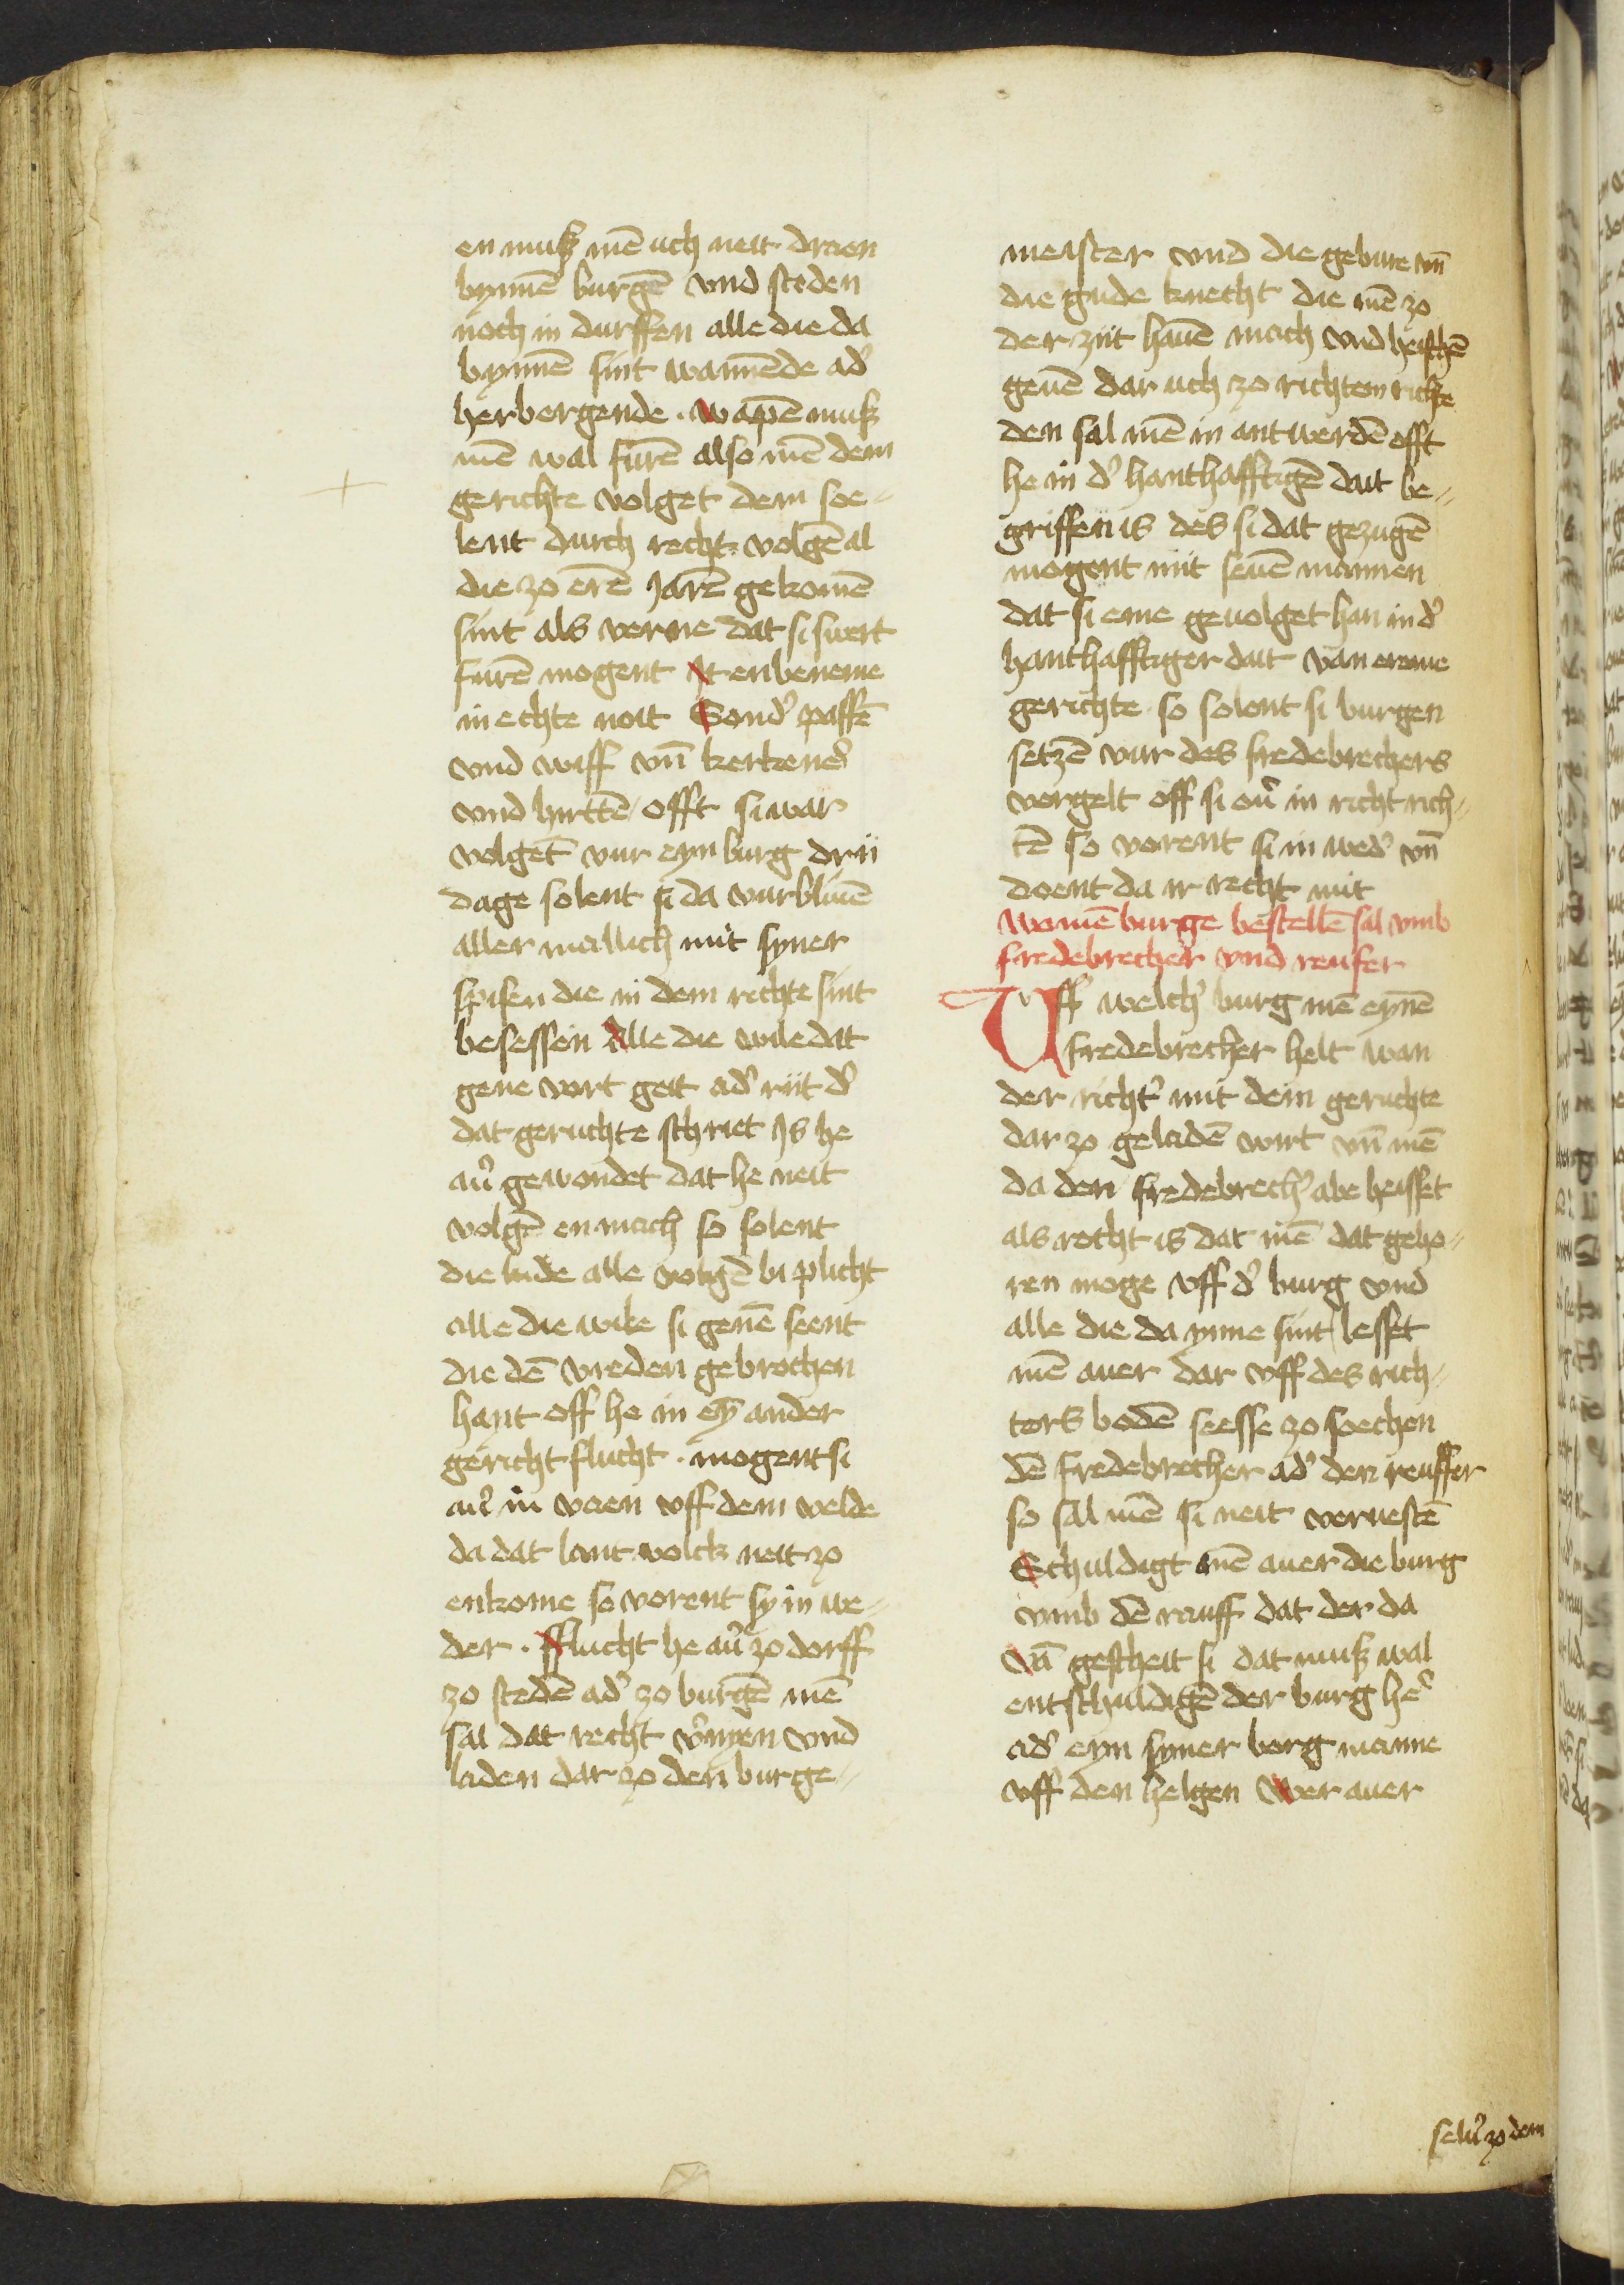 en muß mē uch neit draen
bynnē burgē vnd steden
noch in durffen alle die da
bynnē sint wannēde adˀ
herbergende . wapē muß
mē wal furē also mē dem
gerichte volget dem soe-
lent durch recht volgē al
die zo erē Jarē gekomē
sint als verne dat si swert
furē mogent It enbeneme
in echte noit Sondˀ paffē
vnd wiff vn̄ kerkenˀ
vnd hirttē offt si war
volgēt vur eyn burg drii
dage solent si da vurbliuē
aller mallich mit syner
spisen die in dem richte sint
besessen Alle die wile dat
gene vort geit adˀ riit dˀ
dat geruchte schriet Is he
auˀ gewondet dat he neit
volgē en mach so solent
die lude alle volgē bi plicht
alle die wile si genē seent
die dē vreden gebrochen
hant off he in ey̅ ander
gericht flucht . mogent si
auˀ in vaen vff dem velde
da dat lant volck neit zo
enkome so vorent sy in we-
der . fflucht he auˀ zo dorff
zo stedē adˀ zo burgē mē
sal dat recht vˀnyen vnd
laden dar zo den burge-
meister vnd die gebure vn̄
die gude knecht die mē zo
der ziit hauē mach vnd heischē
geuē dar uch zo richten richte
den sal mē in antwerdē offt
he in dˀ hanthafftigē dait be-
griffen is des si dat gezugē
mogent mit seuē mannen
dat si eme geuolget han in dˀ
hanthafftiger dait van ereme
gerichte so solent si burgen
setzē vur des fredebrechers
vergelt off si ouˀ in richt rich-
tē so vorent si in wedˀ vn̄
doent da ir recht mit
Wo mē burge bestellē sal vmb
fredebrecher vnd reufer
Uff welchˀ burg mē eynē
fredebrecher helt wan
der richtˀ mit dem geruchte
dar zo geladē wirt vn̄ mē
da den fredebrechˀ abe heisset
als recht is dat mē dat geho-
ren moge vff dˀ burg vnd
alle die da ynne sint lesset
mē auer dar vff des rich-
ters bodē seesse zo soechen
dē fredebrecher adˀ den reuffer
so sal mē si neit veruestē
Schuldigt mē auer die burg
vmb dē rauff dat der da
vā gescheit si dat muß wal
entschuldigē der burg heˀ
adˀ eyn syner borg manne
vff den helgen Wer auer
seluˀ zo dem